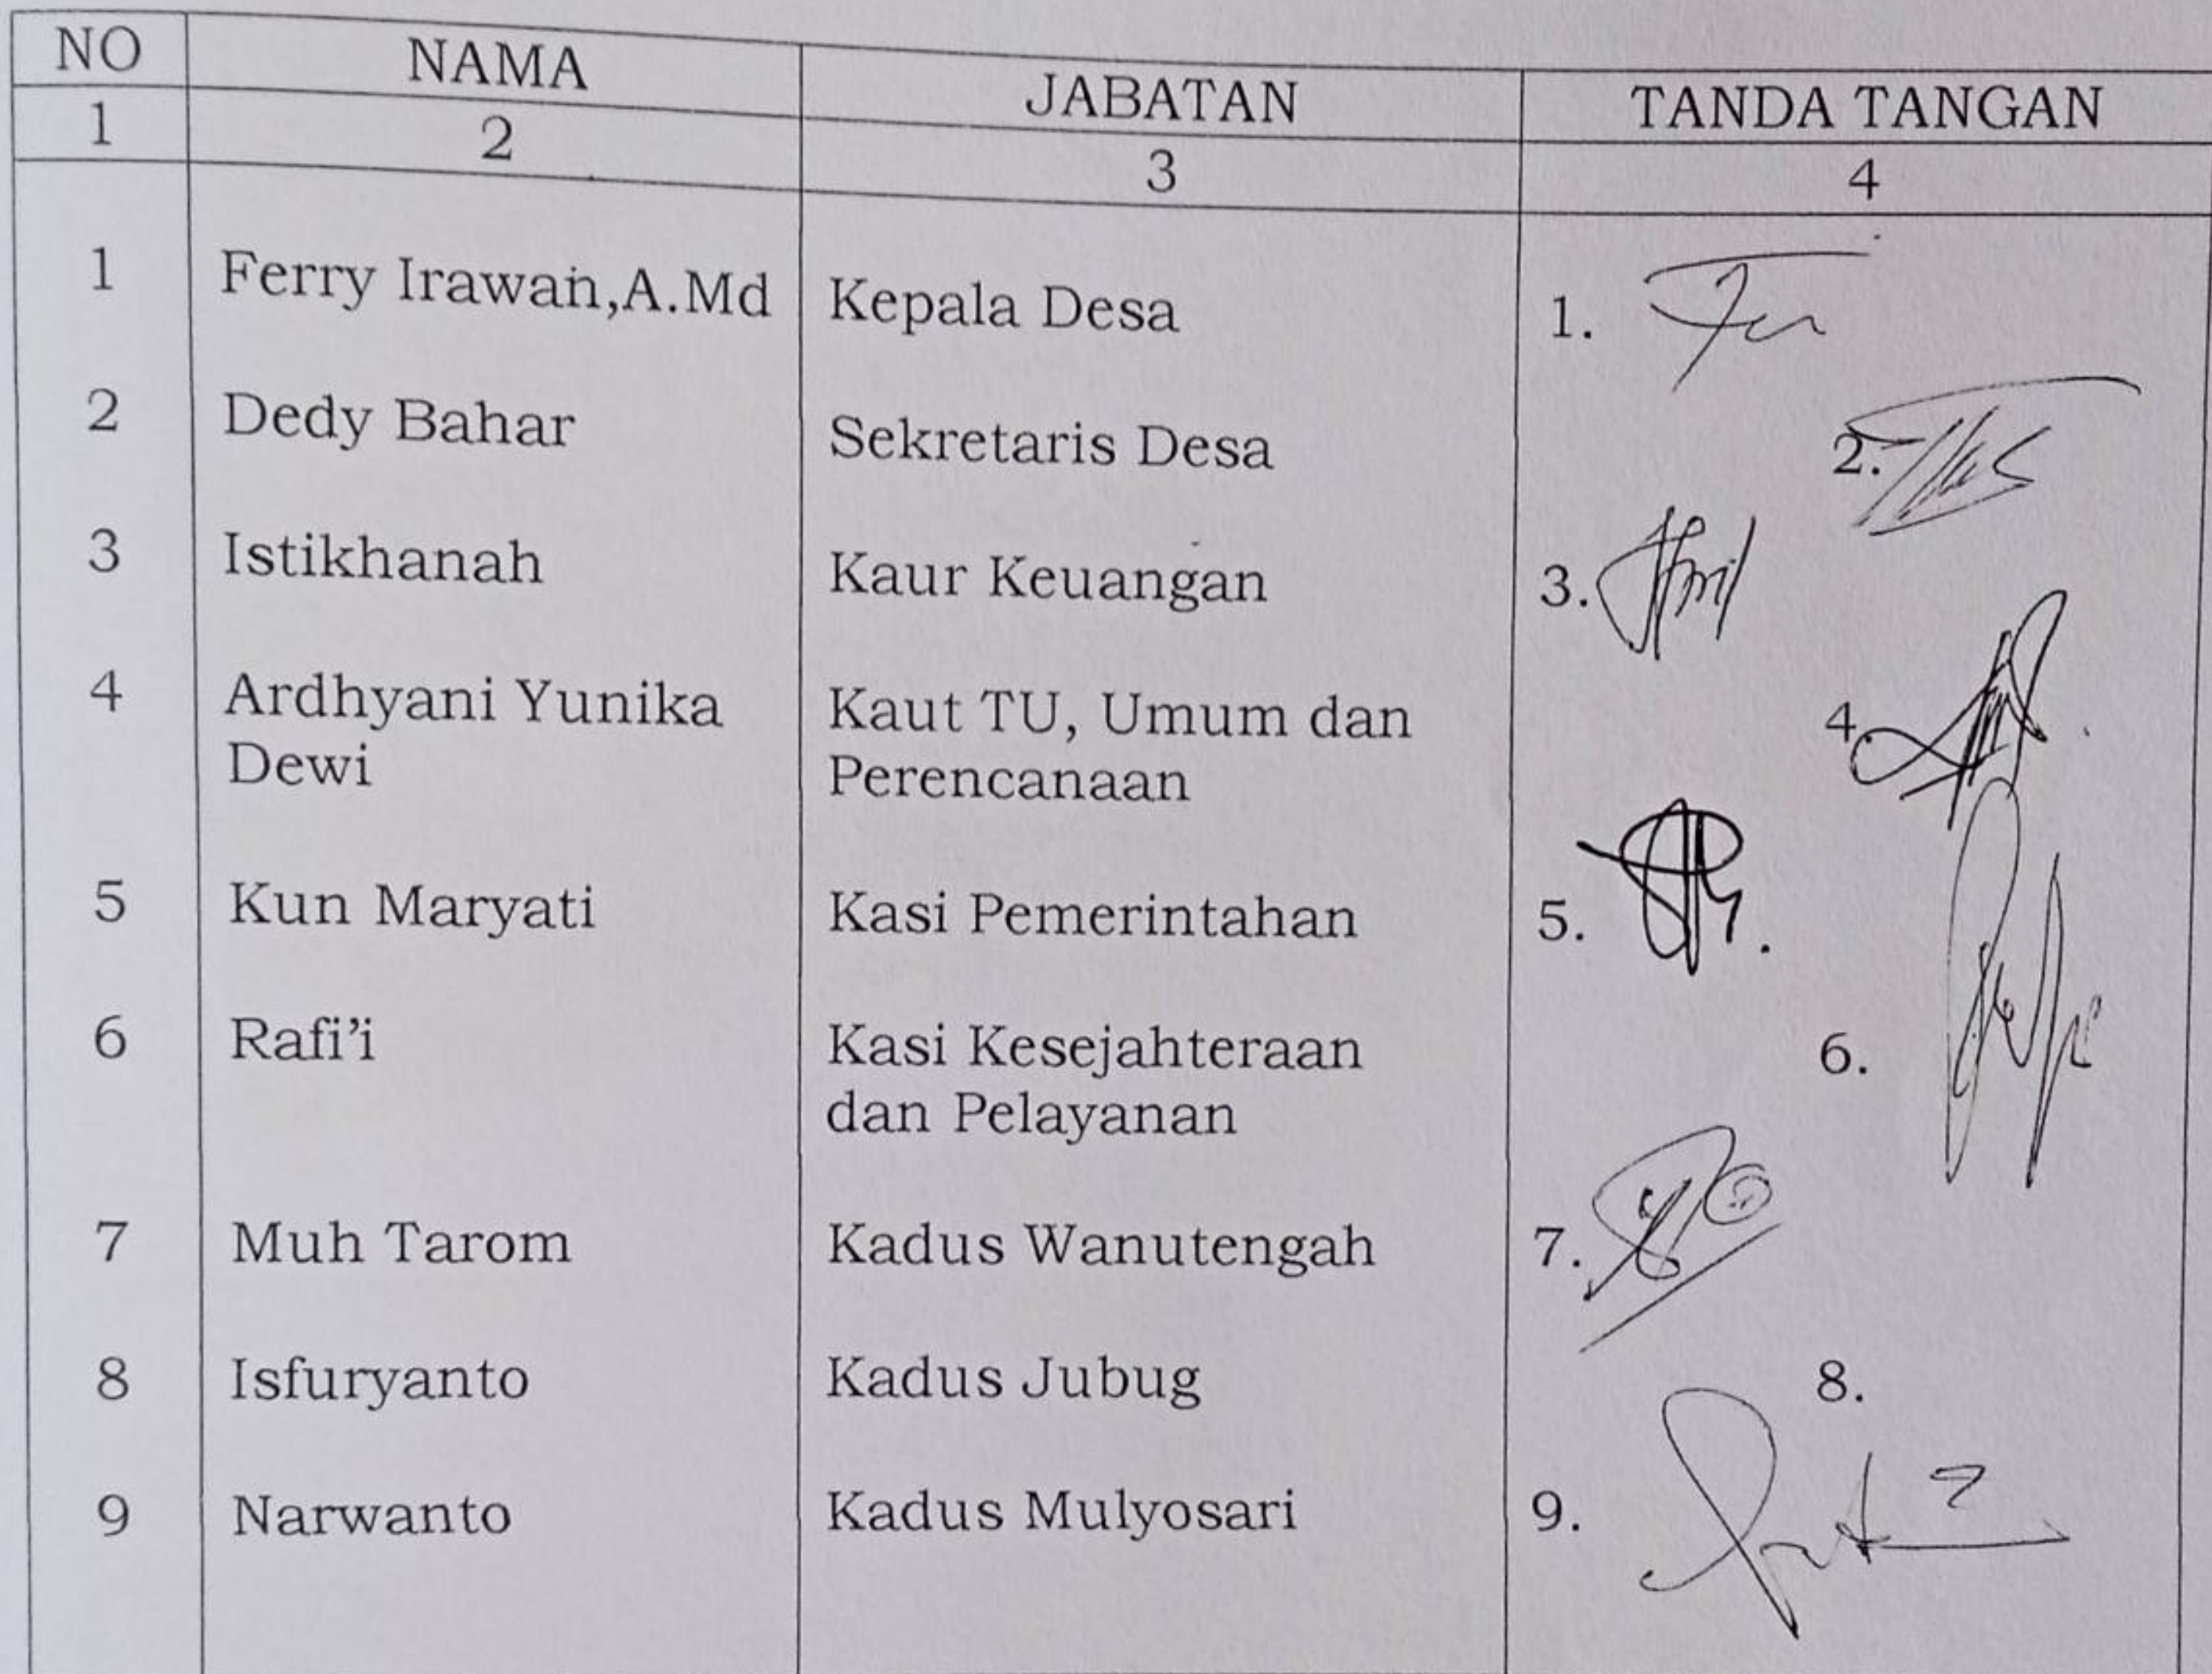 NO NAMA JABATAN TANDA TANGAN
1 2 3 4
1 Ferry Irawan,A.Md Kepala Desa 1.
2 Dedy Bahar Sekretaris Desa 2.
3 Istikhanah Kaur Keuangan 3.
4 Ardhyani Yunika Kaut TU, Umum dan 4.
Dewi Perencanaan
5 Kun Maryati Kasi Pemerintahan 5.
6 Rafi’i Kasi Kesejahteraan 6.
dan Pelayanan
7 Muh Tarom Kadus Wanutengah 7.
8 Isfuryanto Kadus Jubug 8.
9 Narwanto Kadus Mulyosari 9.